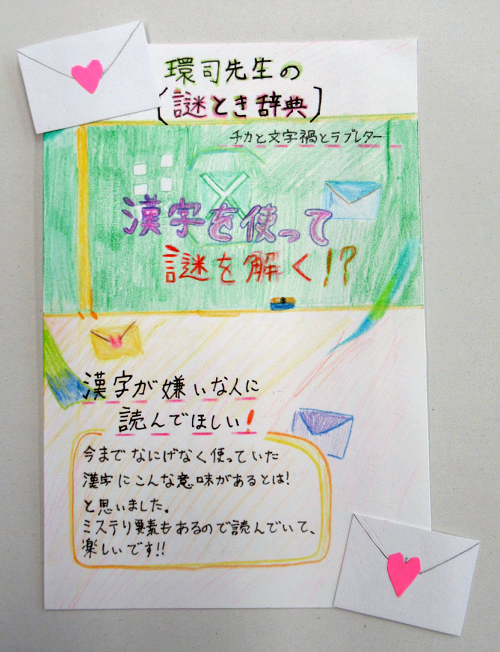 環司先生の
(謎とき辞典)
チカと文字禍とラブレター
漢字を使って
謎を解く!?
漢字が嫌いな人に
読んでほしい!
今までなにげなく使っていた
漢字にこんな意味があるとは!
と思いました。
ミステリ要素もあるので読んでいて、
楽しいです!!